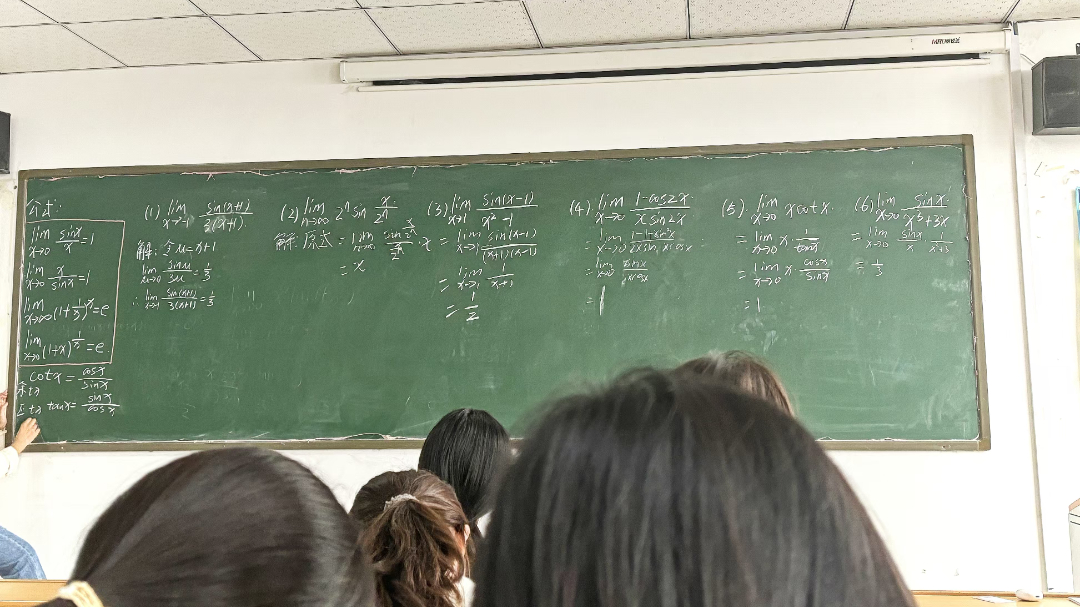 公式:
lim x→0 sinx/x =1
lim x→0 x/sinx =1
lim x→∞ (1+1/x)^x=e
lim x→0 (1+x)^(1/x)=e
cotx = cosx/sinx
余切
正切 tanx= sinx/cosx
(1) lim x→-1 sin(x+1)/3(x+1).
解: 令u=x+1
lim u→0 sinu/3u = 1/3
∴ lim x→-1 sin(x+1)/3(x+1) = 1/3
(2) lim n→∞ 2ⁿ sin x/2ⁿ
解: 原式 = lim n→∞ sin x/2ⁿ / x/2ⁿ · x
= x
(3) lim x→1 sin(x-1)/x²-1
= lim x→1 sin(x-1)/(x+1)(x-1)
= lim x→1 1/x+1
= 1/2
(4) lim x→0 1-cos2x/x sin2x
= lim x→0
= lim x→0
= 1
(5) lim x→0 xcotx.
= lim x→0 x· 1/tanx
= lim x→0 x· cosx/sinx
= 1
(6) lim x→0 sinx/x³+3x
= lim x→0 sinx/x · 1/x²+3
= 1/3